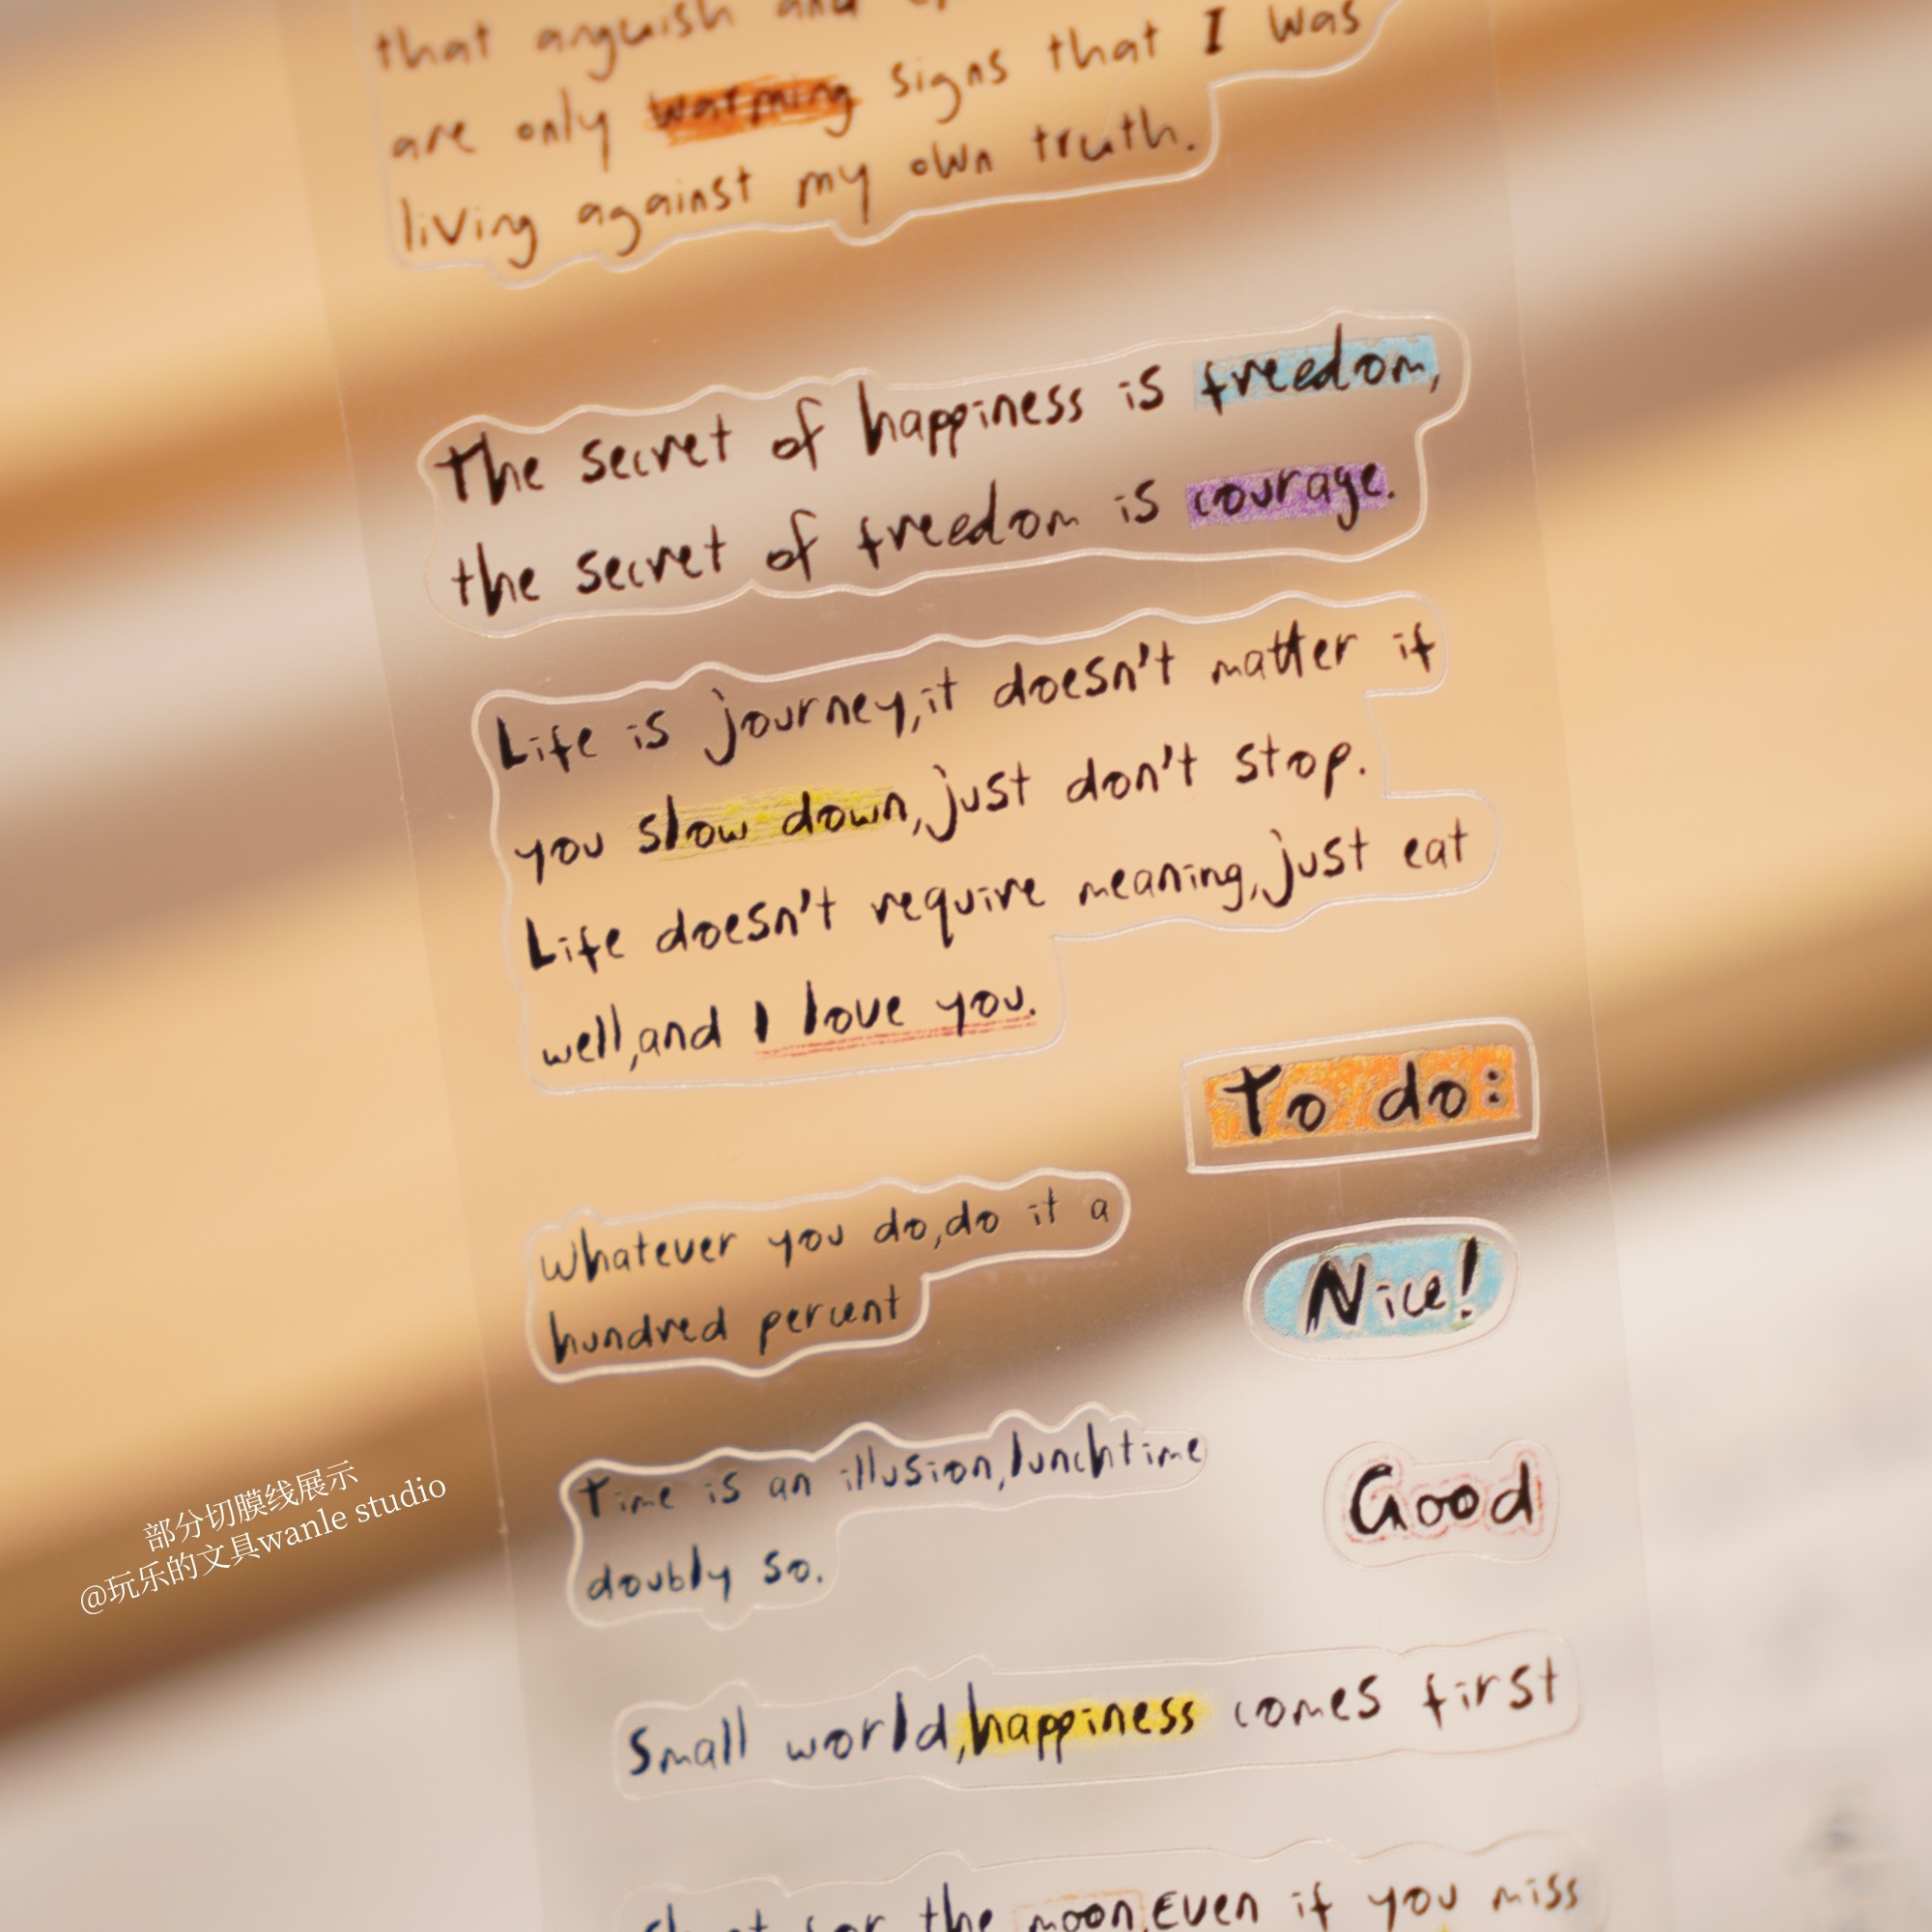 that anguish and
are only warming signs that I was
living against my own truth.
The secret of happiness is freedom,
the secret of freedom is courage.
Life is journey,it doesn't matter if
you slow down,just don't stop.
Life doesn't require meaning,just eat
well,and I love you.
To do:
Whatever you do,do it a
hundred percent
Nice!
Time is an illusion,lunchtime
doubly so.
Good
Small world,happiness comes first
the moon,Even if you miss
部分切膜线展示
@玩乐的文具wanle studio